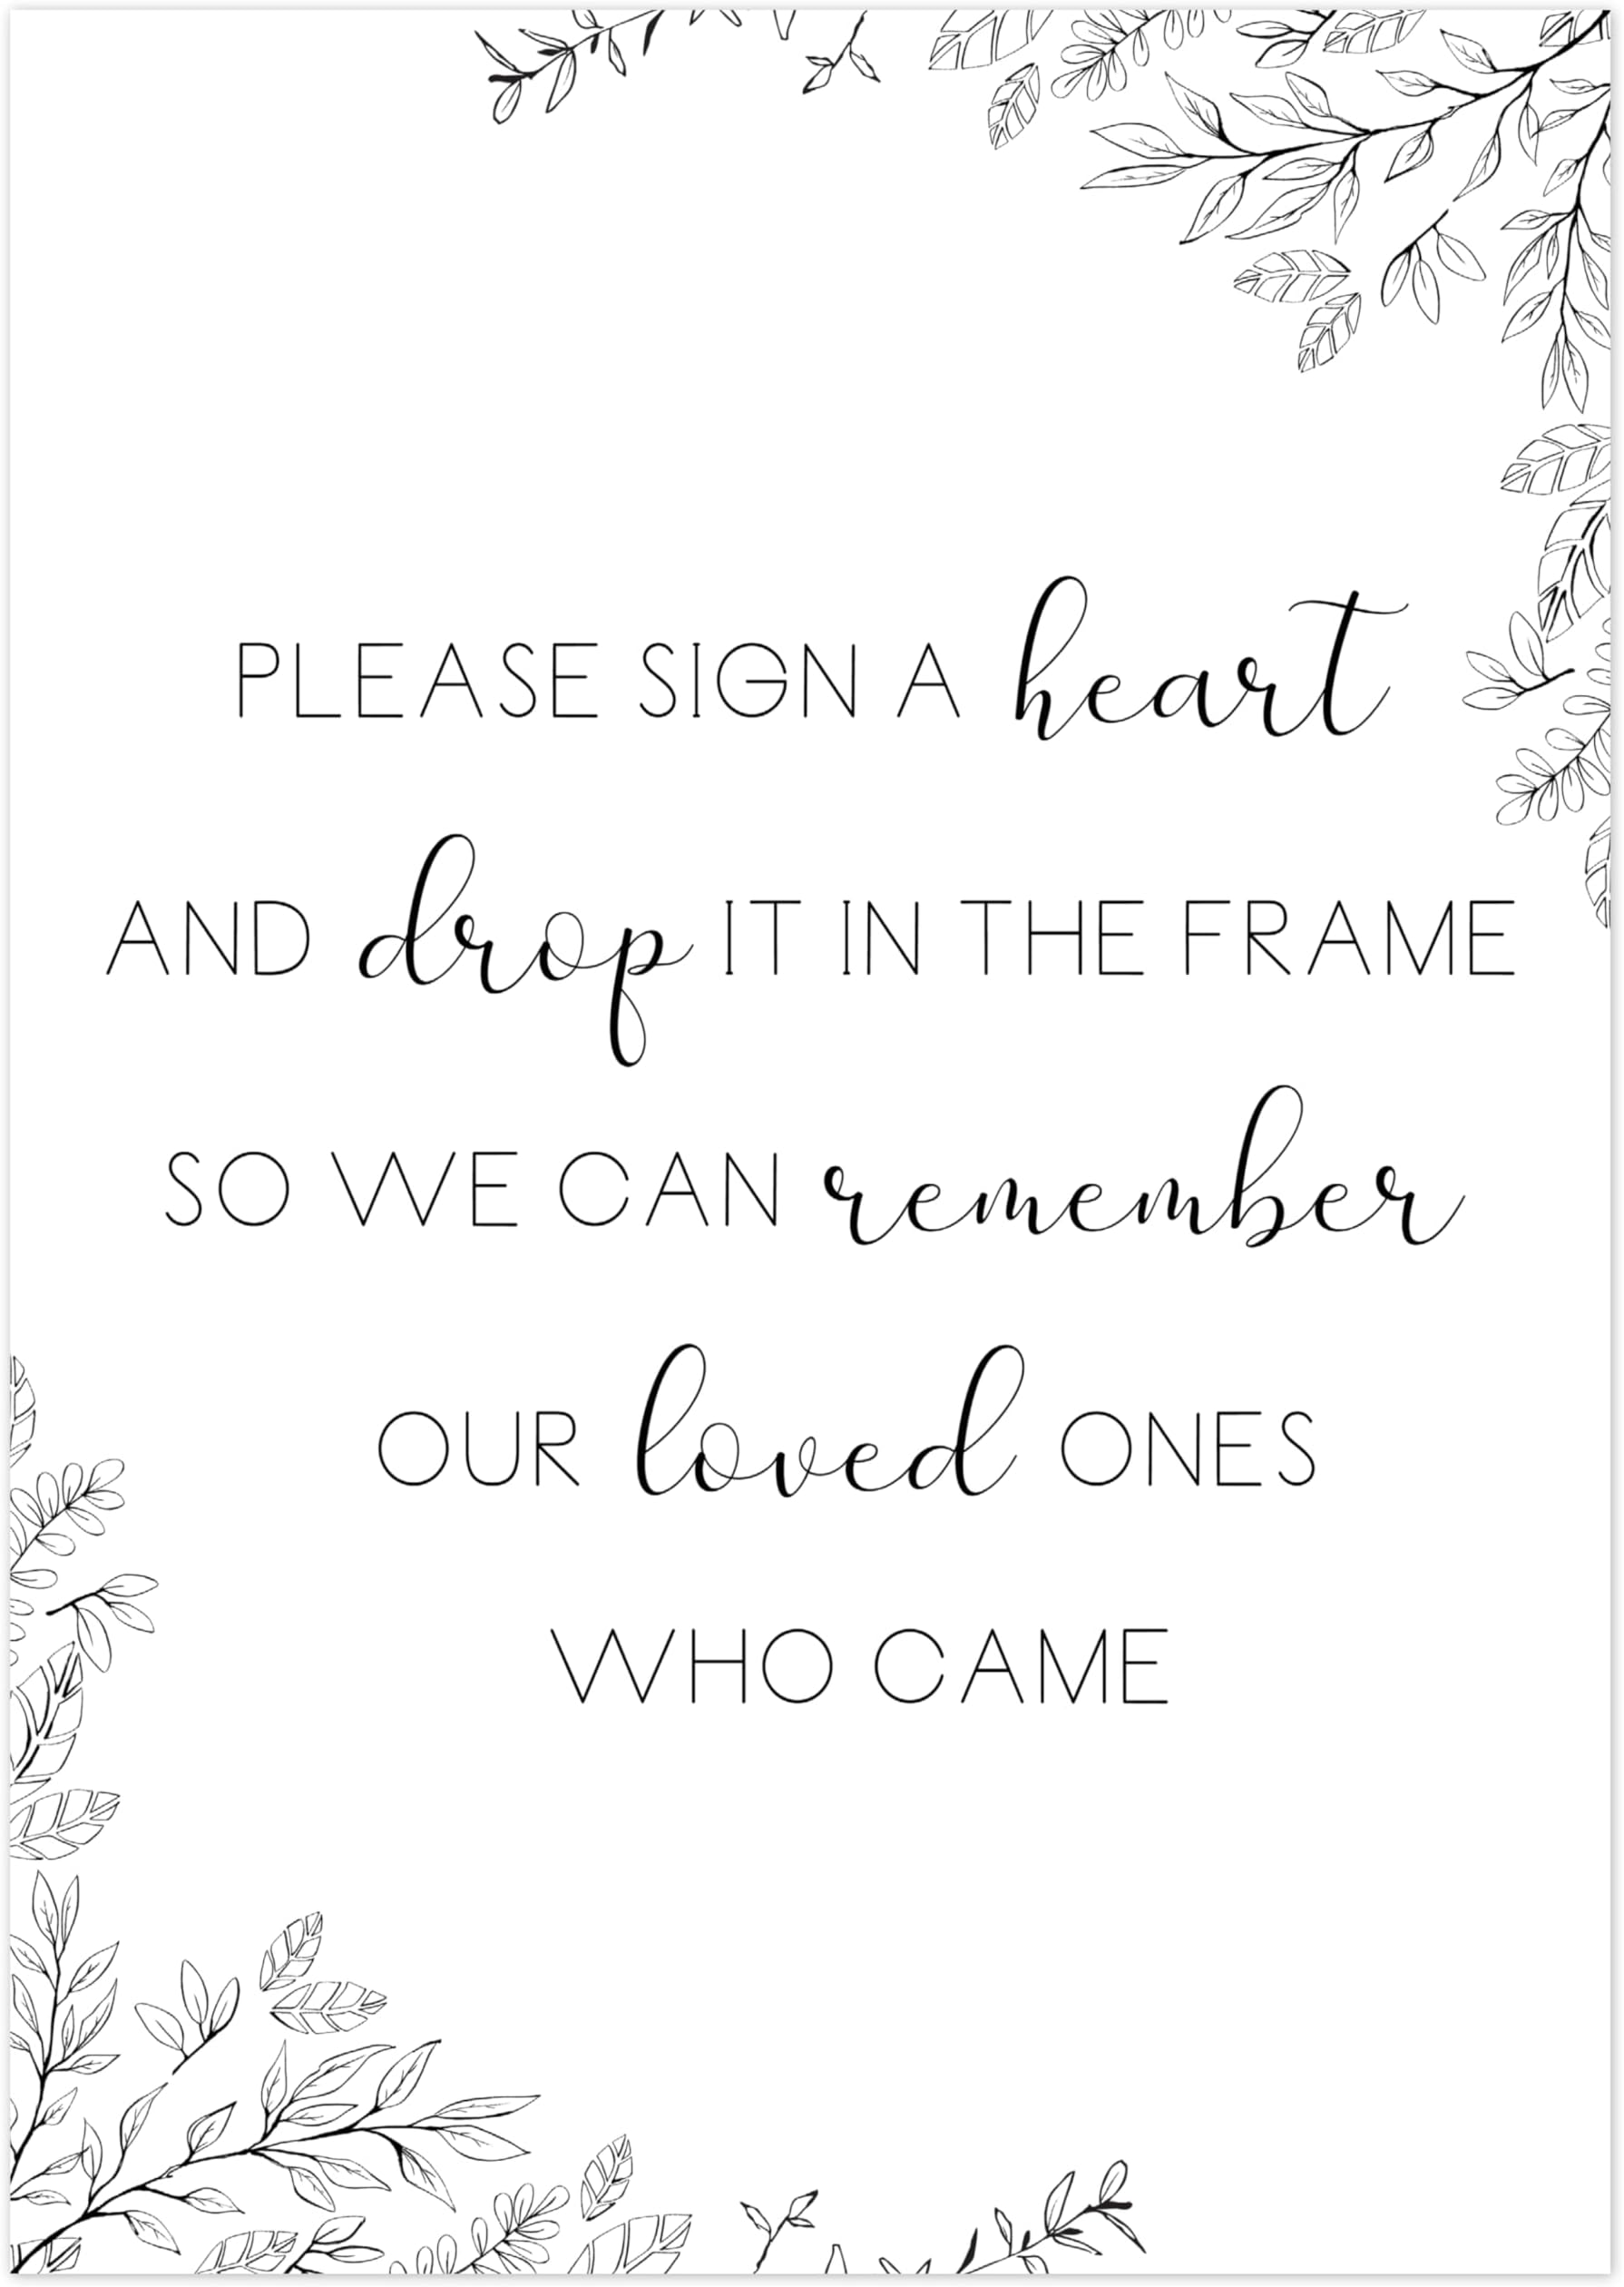 PLEASE SIGN A heart
AND drop IT IN THE FRAME
SO WE CAN remember
OUR loved ONES
WHO CAME